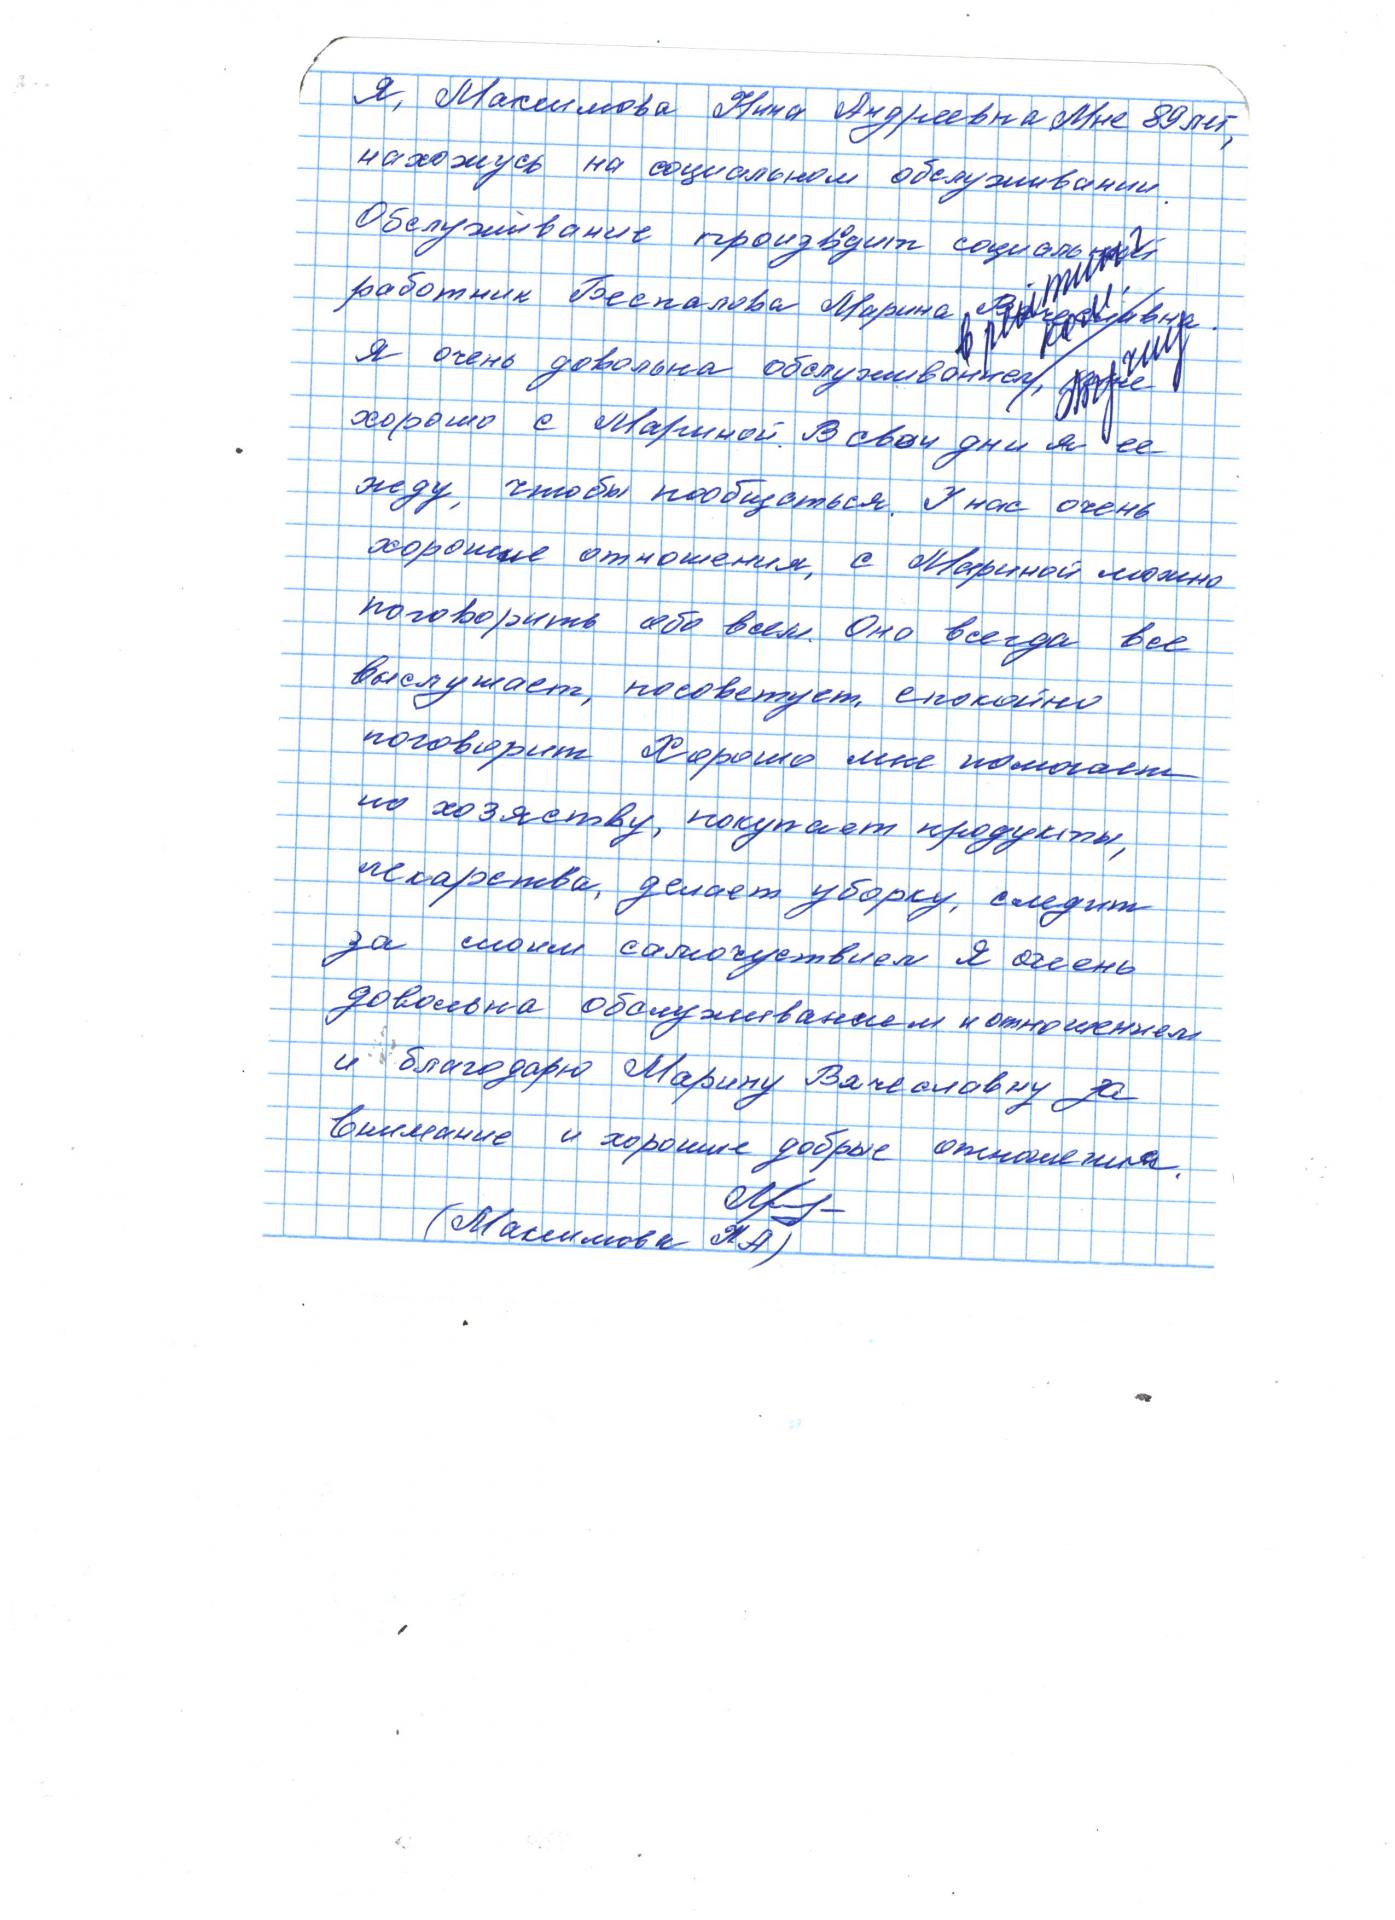 Я, Максимова Нина Андреевна Мне 89 лет,
нахожусь на социальном обслуживании.
Обслуживание производит социальный
работник Беспалова Марина Вячеславна.
Я очень довольна обслуживанием, мне
хорошо с Мариной. В свои дни я ее
жду, чтобы пообщаться. У нас очень
хорошие отношения, с Мариной можно
поговорить обо всем. Она всегда все
выслушает, посоветует, спокойно
поговорит Хорошо мне помогает
по хозяству, покупает продукты,
лекарства, делает уборку, следит
за моим самочуствием Я очень
довольна обслуживанием и отношением
и благодарю Марину Вячеславну за
внимание и хорошие добрые отношения.
(Максимова НА)